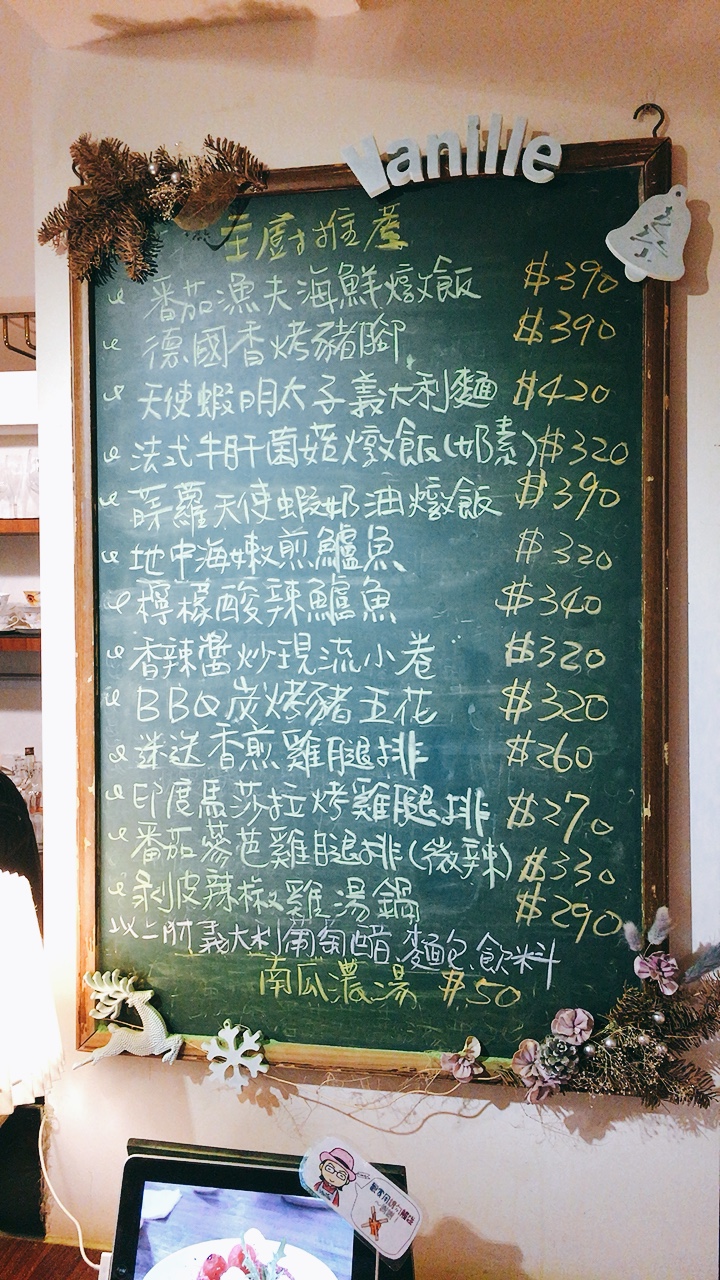 Vanille
主廚推薦
番茄漁夫海鮮燉飯 $390
德國香烤豬腳 $390
天使蝦明太子義大利麵 $420
法式牛肝菌菇燉飯(奶素) $320
菠蘿天使蝦奶油燉飯 $390
地中海嫩煎鱸魚 $320
檸檬酸辣鱸魚 $340
香辣醬炒現流小卷 $320
BBQ炭烤豬五花 $320
迷迭香煎雞腿排 $260
印度馬莎拉烤雞腿排 $270
番茄蔘芭雞腿排(微辣) $330
剝皮辣椒雞湯鍋 $290
以上附義大利葡萄醋.麵包.飲料
南瓜濃湯 $50